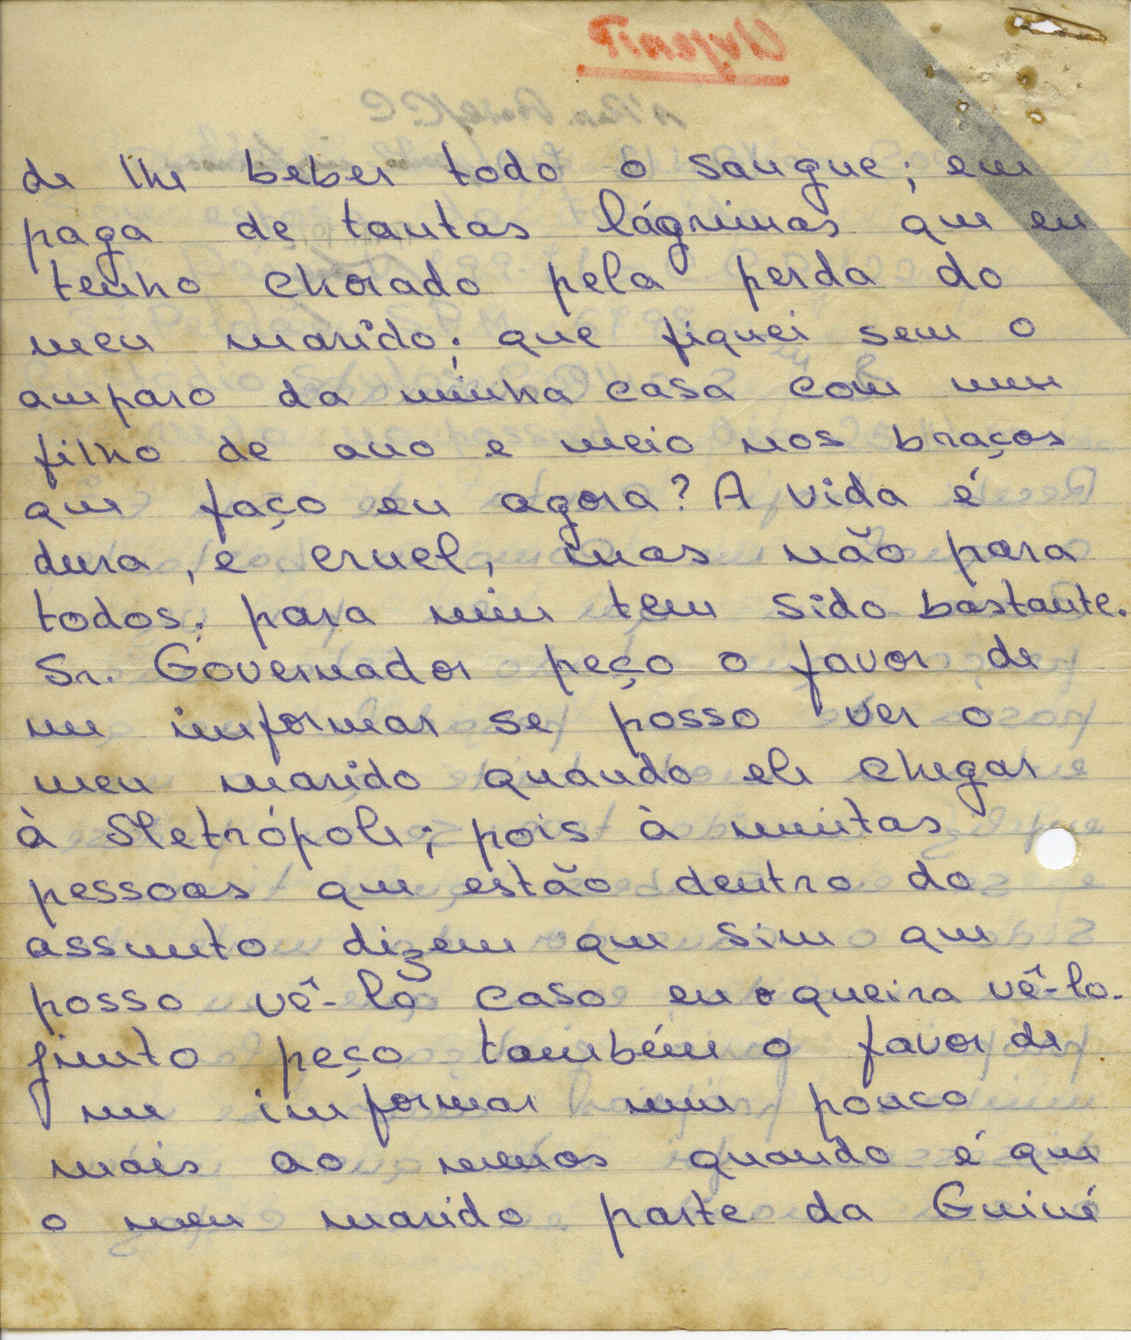 de lhe beber todo o sangue; em
paga de tantas lágrimas que eu
tenho chorado pela perda do
meu marido; que fiquei sem o
amparo da minha casa com um
filho de ano e meio nos braços
que faço eu agora? A vida é
dura, e cruel, mas não para
todos; para mim tem sido bastante.
Sr. Governador peço o favor de
me imformar se posso ver o
meu marido quando ele chegar
à Metrópole; pois à muitas
pessoas que estão dentro do
assunto dizem que sim que
posso vê-lo caso eu queira vê-lo.
Junto peço também o favor de
me imformar um pouco
mais ao menos quando é que
o meu marido parte da Guiné